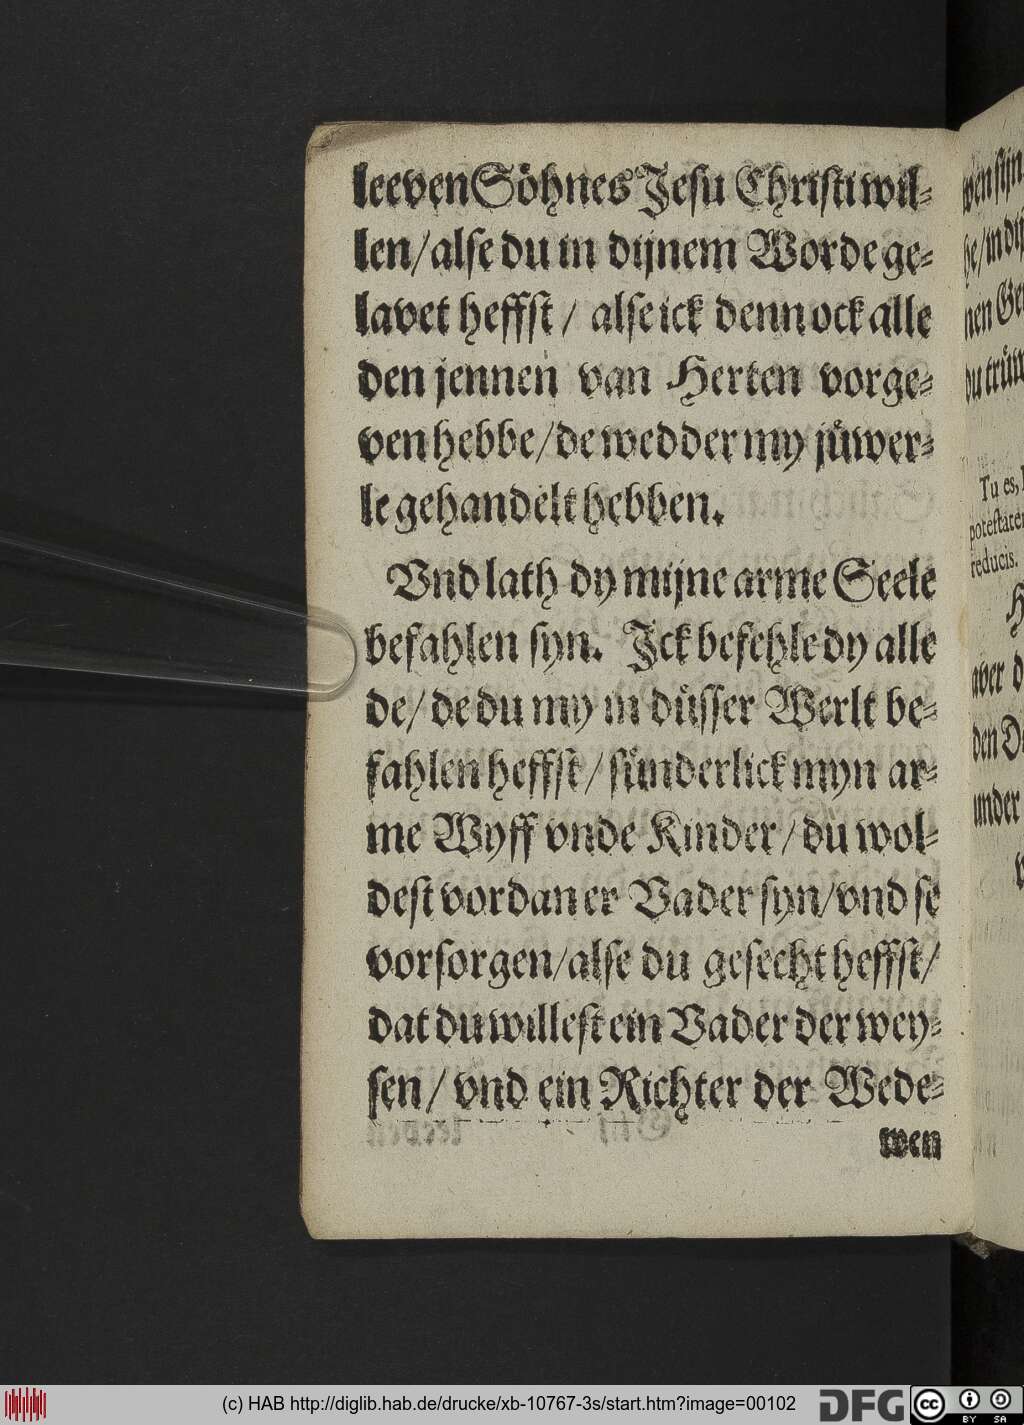 leeven Söhnes Jesu Christi wil-
len/ alse du in dijnem Worde ge-
lavet heffst/ alse ick denn ock alle
den jennen van Herten vorge-
ven hebbe/ de wedder my jůwer-
le gehandelt hebben.
Vnd lath dy mijne arme Seele
befahlen syn. Jck befehle dy alle
de/ de du my in důsser Werlt be-
fahlen heffst/ sůnderlick myn ar-
me Wyff vnde Kinder/ du wol-
dest vordan er Vader syn/ vnd se
vorsorgen/ alse du gesecht heffst/
dat du willest ein Vader der wey-
sen/ vnd ein Richter der Wede-
wen
Tu es,
reducis.
aver
den
under
(c) HAB http://diglib.hab.de/drucke/xb-10767-3s/start.htm?image=00102
DFG
cc BY SA